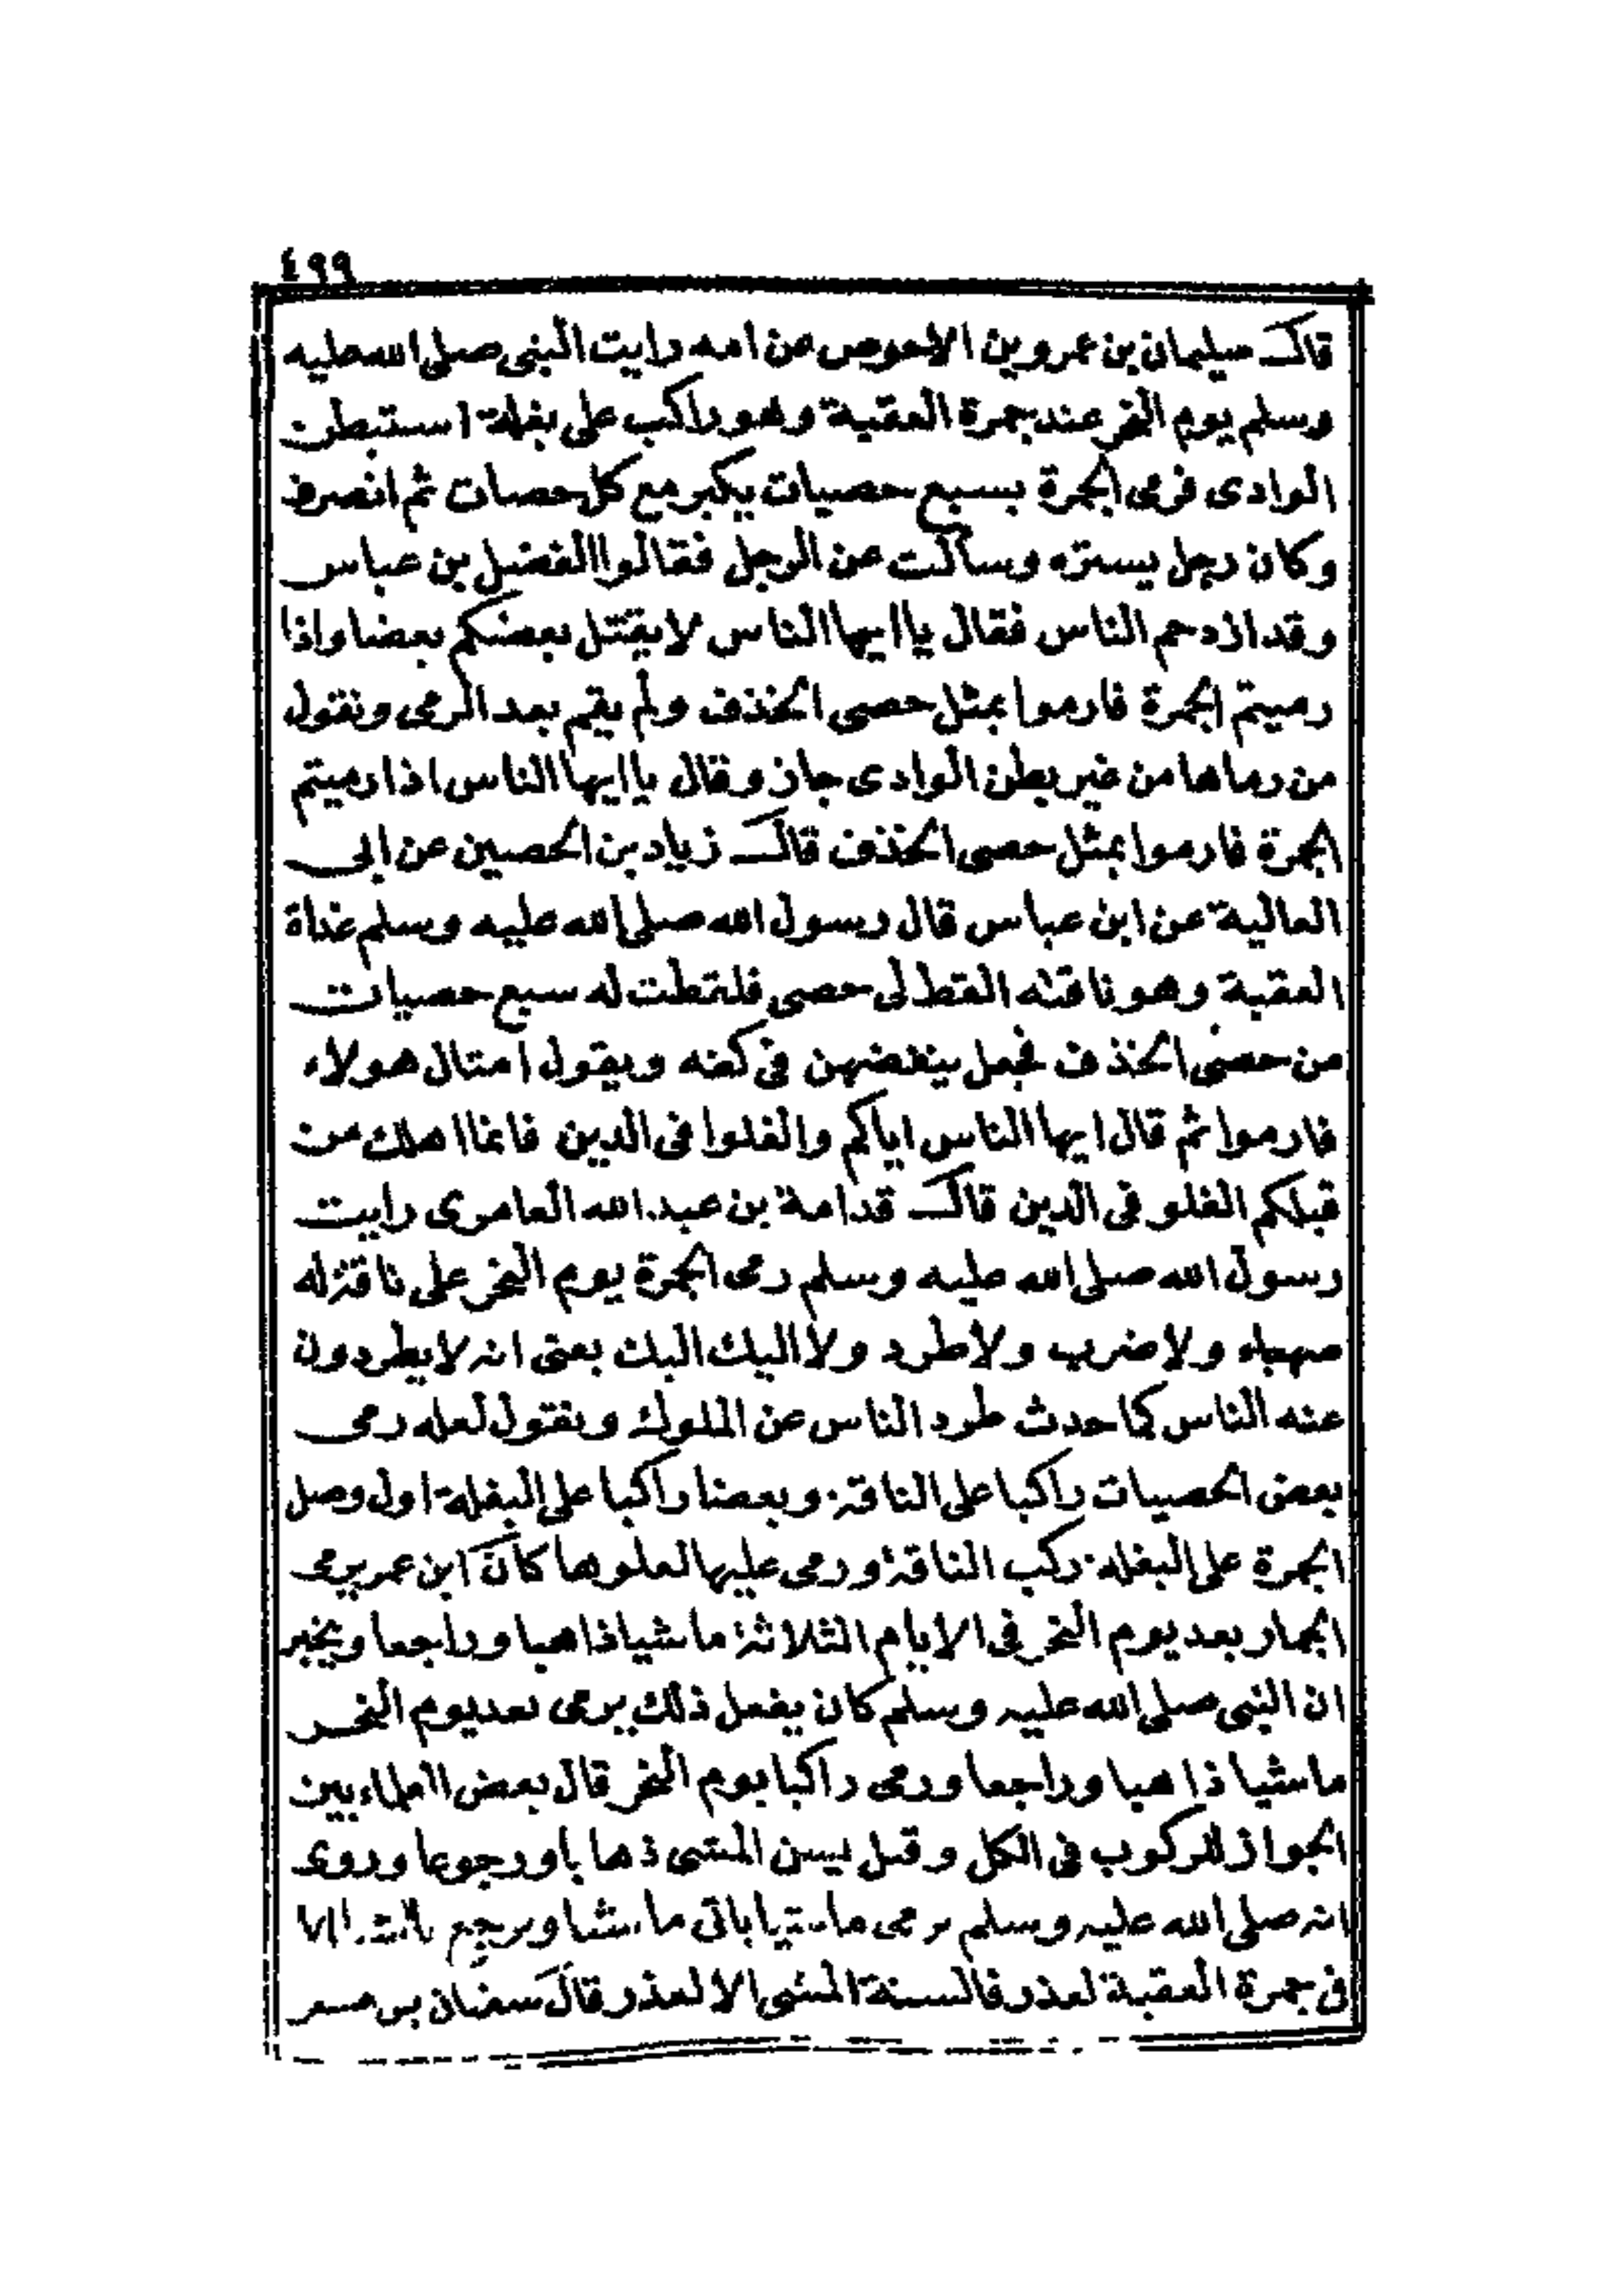 ٤٩٩
قال سليمان بن عمرو بن الاحوص عن امه رايت النبى صلى الله عليه
وسلم يوم النحر عند جمرة العقبة وهو راكب على بغلة استبطن
الوادى فرمى الجمرة بسبع حصيات يكبر مع كل حصات ثم انصرف
وكان رجل يستره وسألت عن الرجل فقالوا الفضل بن عباس
وقد ازدحم الناس فقال يا ايها الناس لا يقتل بعضكم بعضا واذا
رميتم الجمرة فارموا بمثل حصى الخذف ولم يقم بعد الرمى ونقول
من رماها من غير بطن الوادى جاز وقال يا ايها الناس اذا رميتم
الجمرة فارموا بمثل حصى الخذف قال زياد بن الحصين عن ابى
العالية عن ابن عباس قال رسول الله صلى الله عليه وسلم غداة
العقبة وهو ناقته القط لى حصى فلقطت له سبع حصيات
من حصى الخذف فجعل ينفضهن فى كفه ويقول امثال هولاء
فارموا ثم قال ايها الناس اياكم والغلوا فى الدين فانما اهلك من
قبلكم الغلو فى الدين قال قدامة بن عبد الله العامرى رايت
رسول الله صلى الله عليه وسلم رمى الجمرة يوم النحر على ناقة له
صهباء ولا ضرب ولا طرد ولا اليك اليك بعنى انه لا يطردون
عنه الناس كما حدث طرد الناس عن الملوك ونقول لعله رمى
بعض الحصيات راكبا على الناقة وبعضا راكبا على البغلة اول وصل
الجمرة على البغلة ركب الناقة ورمى عليها لعلوها كان ابن عمر يرمى
الجمار بعد يوم النحر فى الايام الثلاثة ماشيا ذاهبا وراجعا ويخبر
ان النبى صلى الله عليه وسلم كان يفعل ذلك يرمى بعد يوم النحر
ماشيا ذاهبا وراجعا ورمى راكبا يوم النحر قال بعض العلماء يبين
الجواز للركوب فى الكل وقيل يسن المشى ذهابا ورجوعا وروى
انه صلى الله عليه وسلم يرمى ماشيا ياتى ماشيا ويرجع
فى جمرة العقبة لعذر فالسنة المشى الا لعذر قال سفيان بن